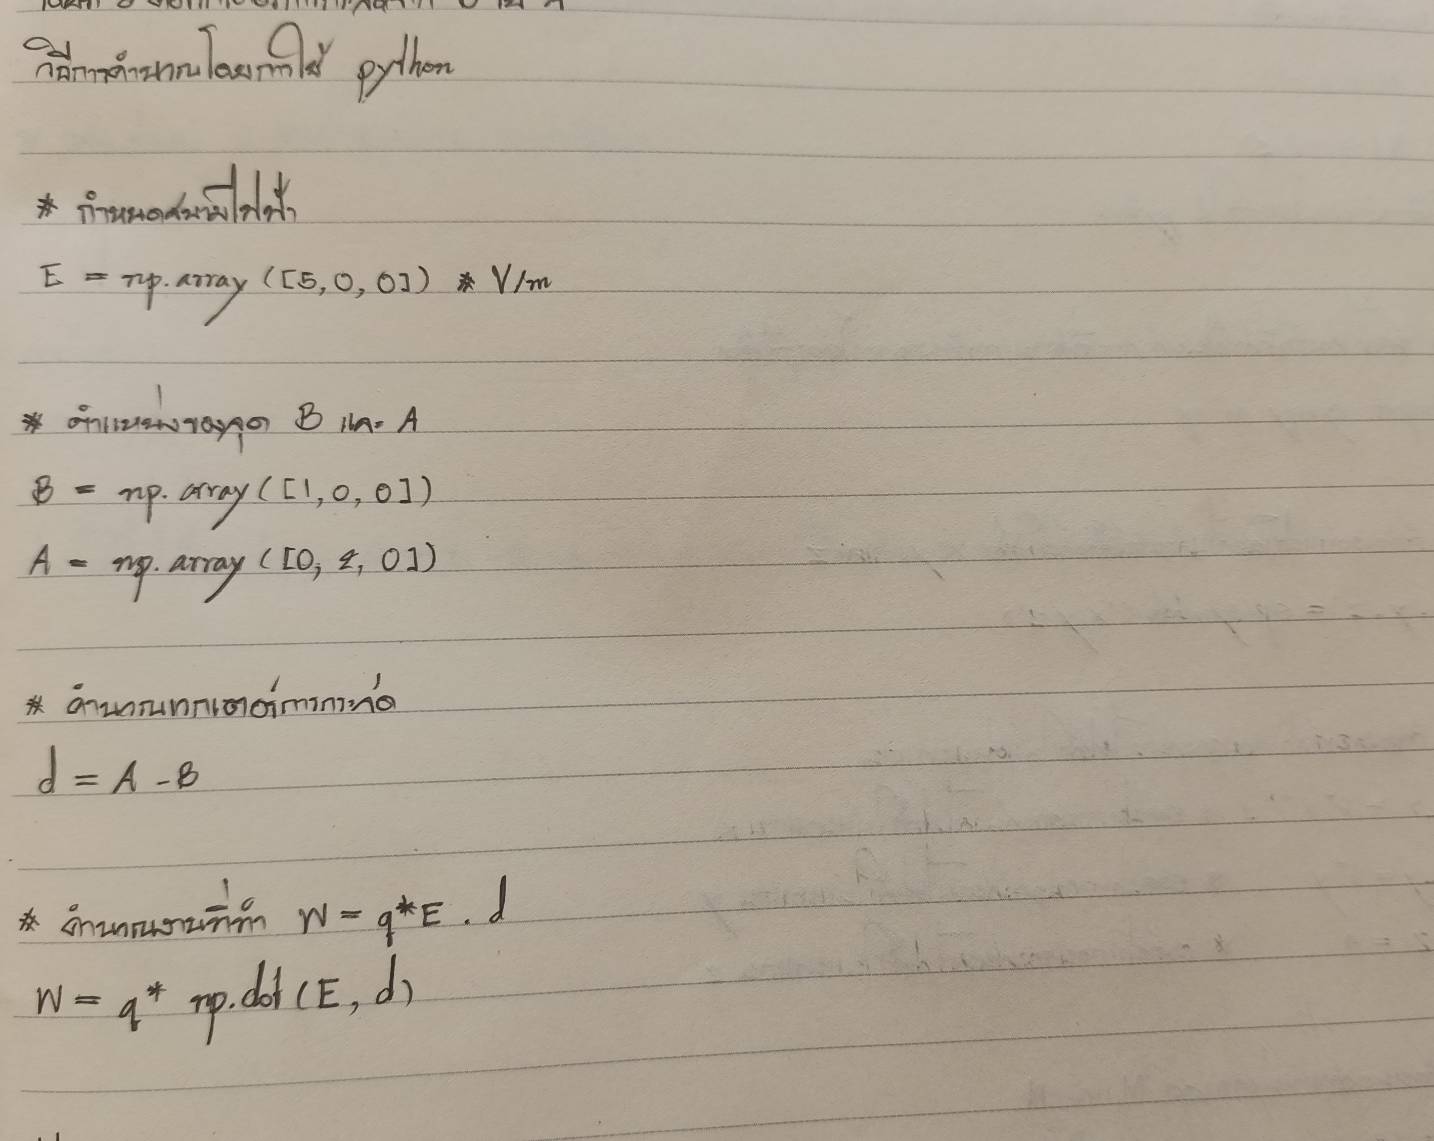 วิธีการคำนวณโดยการใช้ python
* กำหนดสนามไฟฟ้า
E = np.array ([5, 0, 0]) * V/m
* ตำแหน่งของจุด B และ A
B = np. array ([1, 0, 0])
A = np. array ([0, 2, 0])
* คำนวณเวกเตอร์การกระจัด
d = A - B
* คำนวณงานที่ทำ W = q*E . d
W = q* np.dot (E, d)